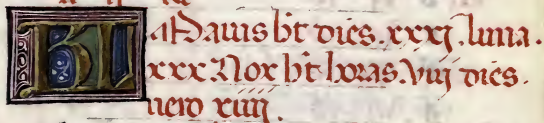 KL Maius ht dies. xxxj. luna.
xxx. Nox ht horas. Viij dies.
uero xuiij.